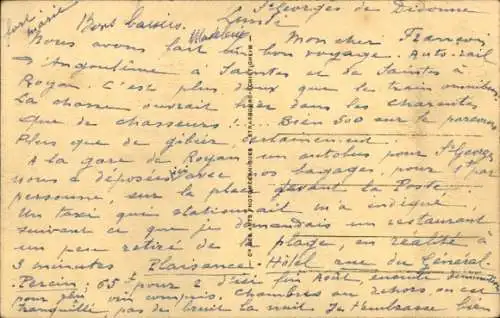 St Georges de Didonne
Lundi
Bons baisers.
Madeleine
Mon cher François
Nous avons fait bon voyage. Auto-rail
d'Angoulême à Saintes et de Saintes à
Royan. C'est plus doux que le train omnibus.
La chasse ouvrait hier dans les charentes
Que de chasseurs !... Bien 500 sur le parcours
Plus que de gibier, certainement.
A la gare de Royan un autobus pour St Georges
nous a déposés avec nos bagages, pour 1f par
personne, sur la place devant la Poste.
Un taxi qui stationnait m'a indiqué,
suivant ce que je demandais un restaurant
un peu retiré de la plage, en réalité à
3 minutes Plaisance - Hôtel rue du Général
Percin; 65f pour 2 d'ici fin Août, ensuite
pour vin compris. Chambres au dehors, on est
tranquille, pas de bruit la nuit. Je t'embrasse bien
CIE DES ARTS PHOTOMECHANIQUES STRASBOURG-SCHILTIGHEIM